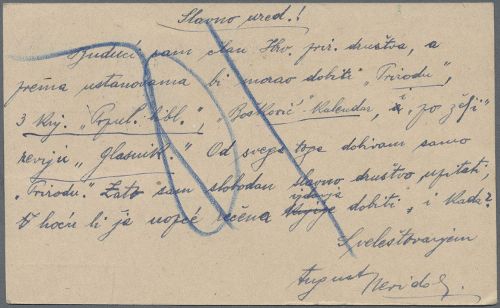 Slavno ured.!
Budući sam član Hrv. prir. društva, a
prema ustanovama bi morao dobiti "Prirodu",
3 knj. "Popul. bibl.", "Bošković" kalendar, i "po želji"
reviju "Glasnik." Od svega toga dobivam samo
"Prirodu." Zato sam slobodan slavno društvo upitati,
hoću li ja uopće rečena izdanja dobiti, i kada?
S veleštovanjem
August